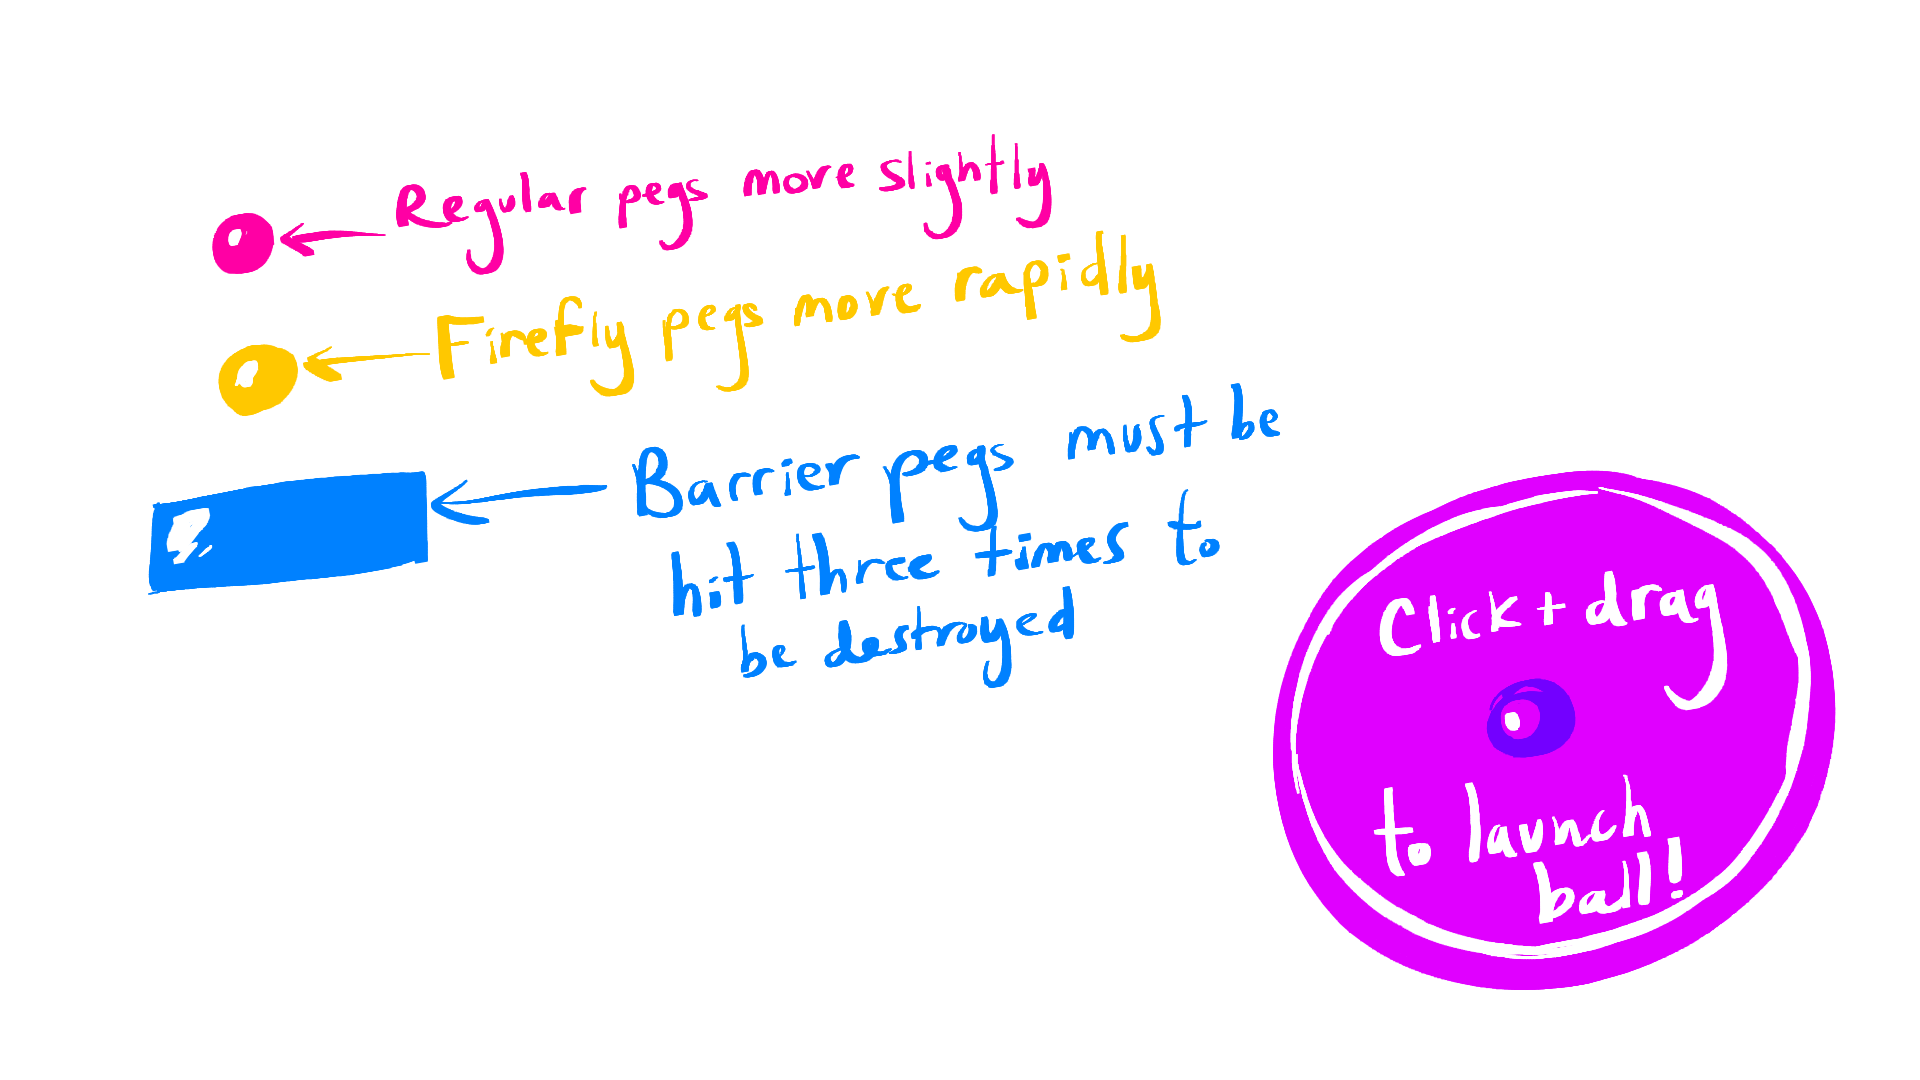 Regular pegs move slightly
Firefly pegs move rapidly
Barrier pegs must be
hit three times to
be destroyed
Click + drag
to launch
ball!